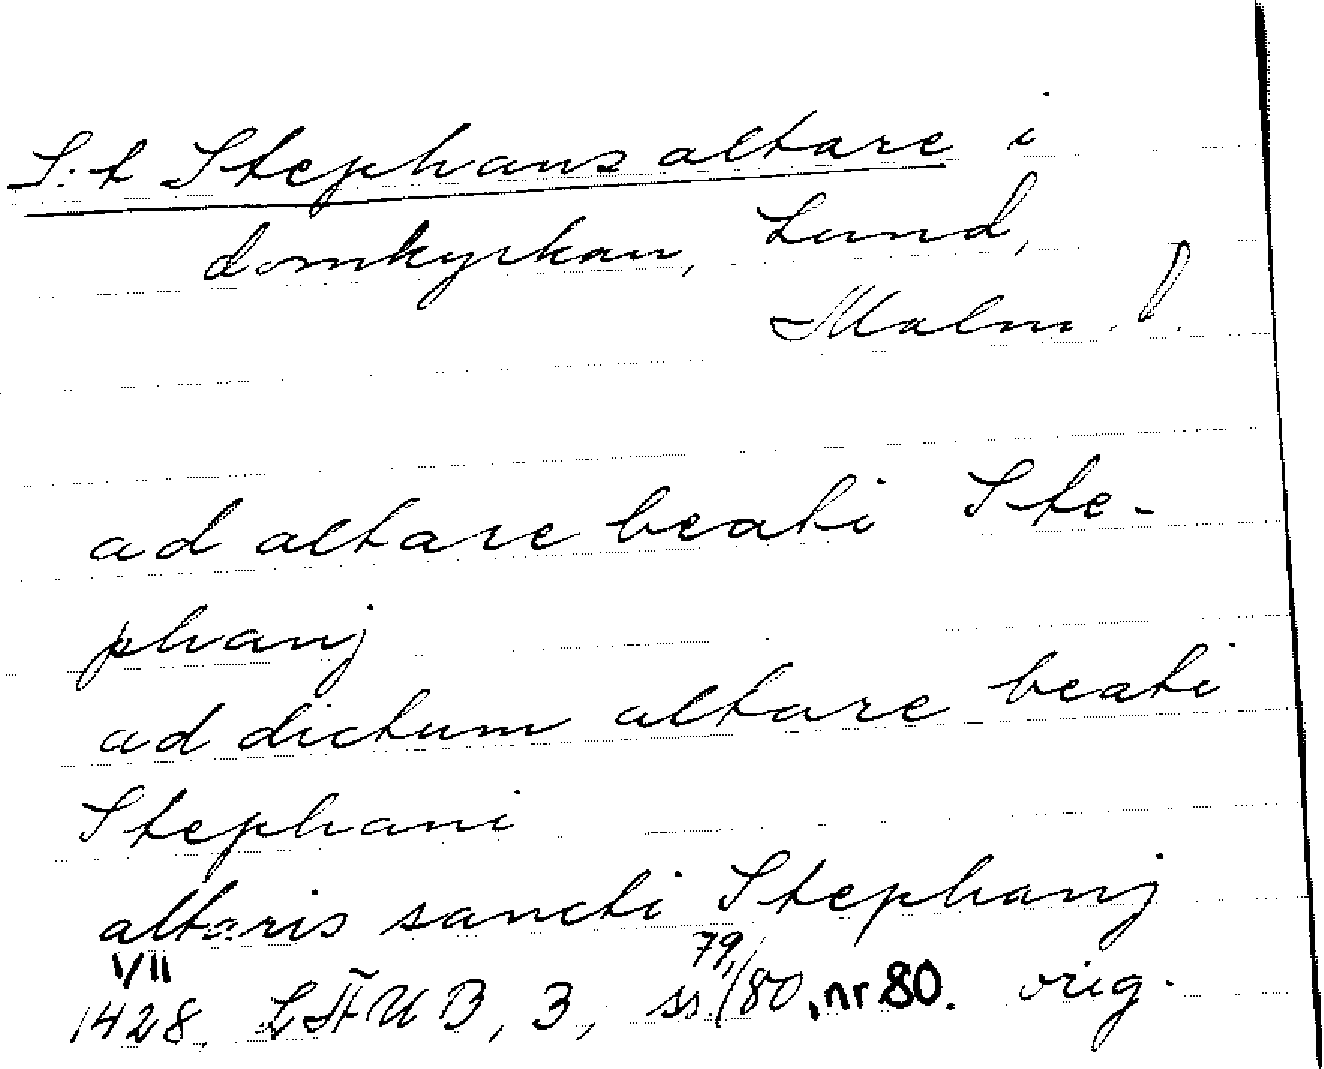 S:t Stephans altare i
domkyrkan, Lund,
Malm.
ad altare beati Ste-
phanj
ad dictum altare beati
Stephani
altaris sancti Stephanj
1/VII 79,
1428. LÄUB, 3, ss /80, nr 80. orig.